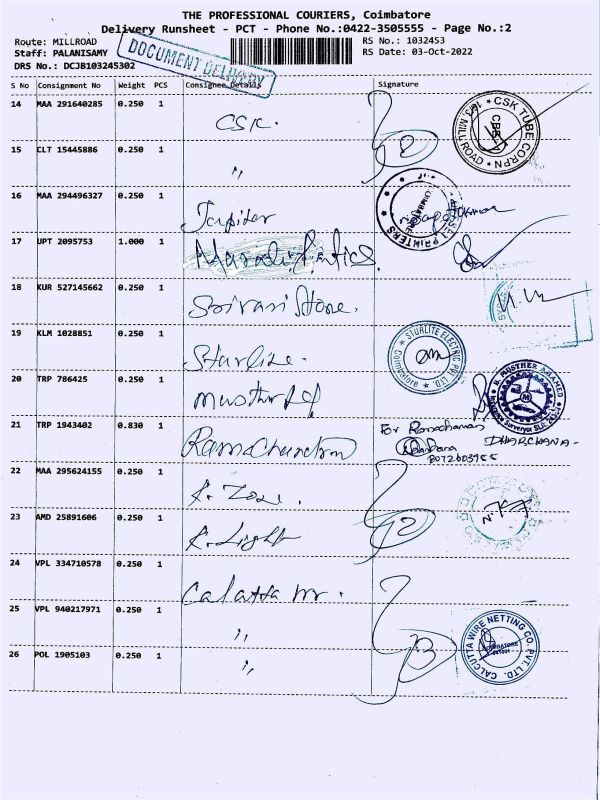 THE PROFESSIONAL COURIERS, Coimbatore
Delivery Runsheet - PCT - Phone No.:0422-3505555 - Page No.:2
Route: MILLROAD
Staff: PALANISAMY
DRS No.: DCJB103245302
DOCUMENT DELIVERY
RS No.: 1032453
RS Date: 03-Oct-2022
S No Consignment No Weight PCS Consignee Details Signature
14 MAA 291640285 0.250 1 CSK.
CSK TUBE CORPN
MILL ROAD
15 CLT 15445886 0.250 1 "
2
16 MAA 294496327 0.250 1 Jupiter
PRINTERS
17 UPT 2095753 1.000 1
18 KUR 527145662 0.250 1 Srivari Stone.
19 KLM 1028851 0.250 1 Sturlite.
STURLITE ELECTRIC PVT LTD.
Coimbatore
20 TRP 786425 0.250 1
B. MUSTHER AHAMED
21 TRP 1943402 0.830 1 Ramachandran
For Ramachandran
DHARCHANA-
22 MAA 295624155 0.250 1
23 AMD 25891606 0.250 1 R. Light
2
24 VPL 334710578 0.250 1 Calcutta W.
25 VPL 940217971 0.250 1 "
26 POL 1905103 0.250 1 "
3
CALCUTTA WIRE NETTING CO. PVT. LTD.